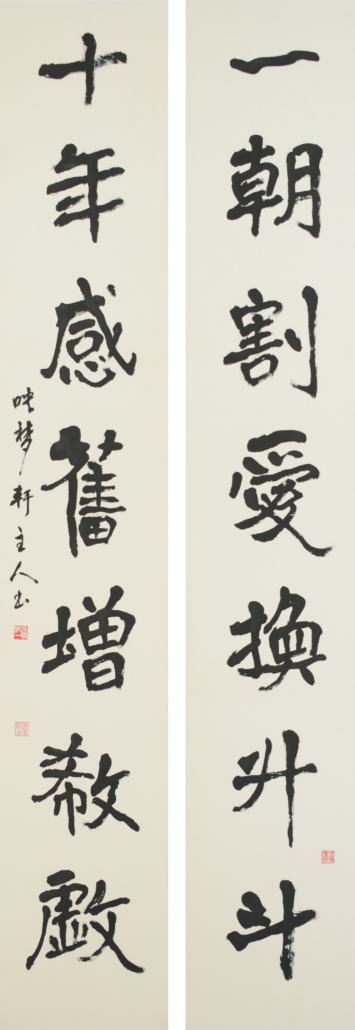 一朝割愛換升斗
十年感舊增欷歔
映夢軒主人書